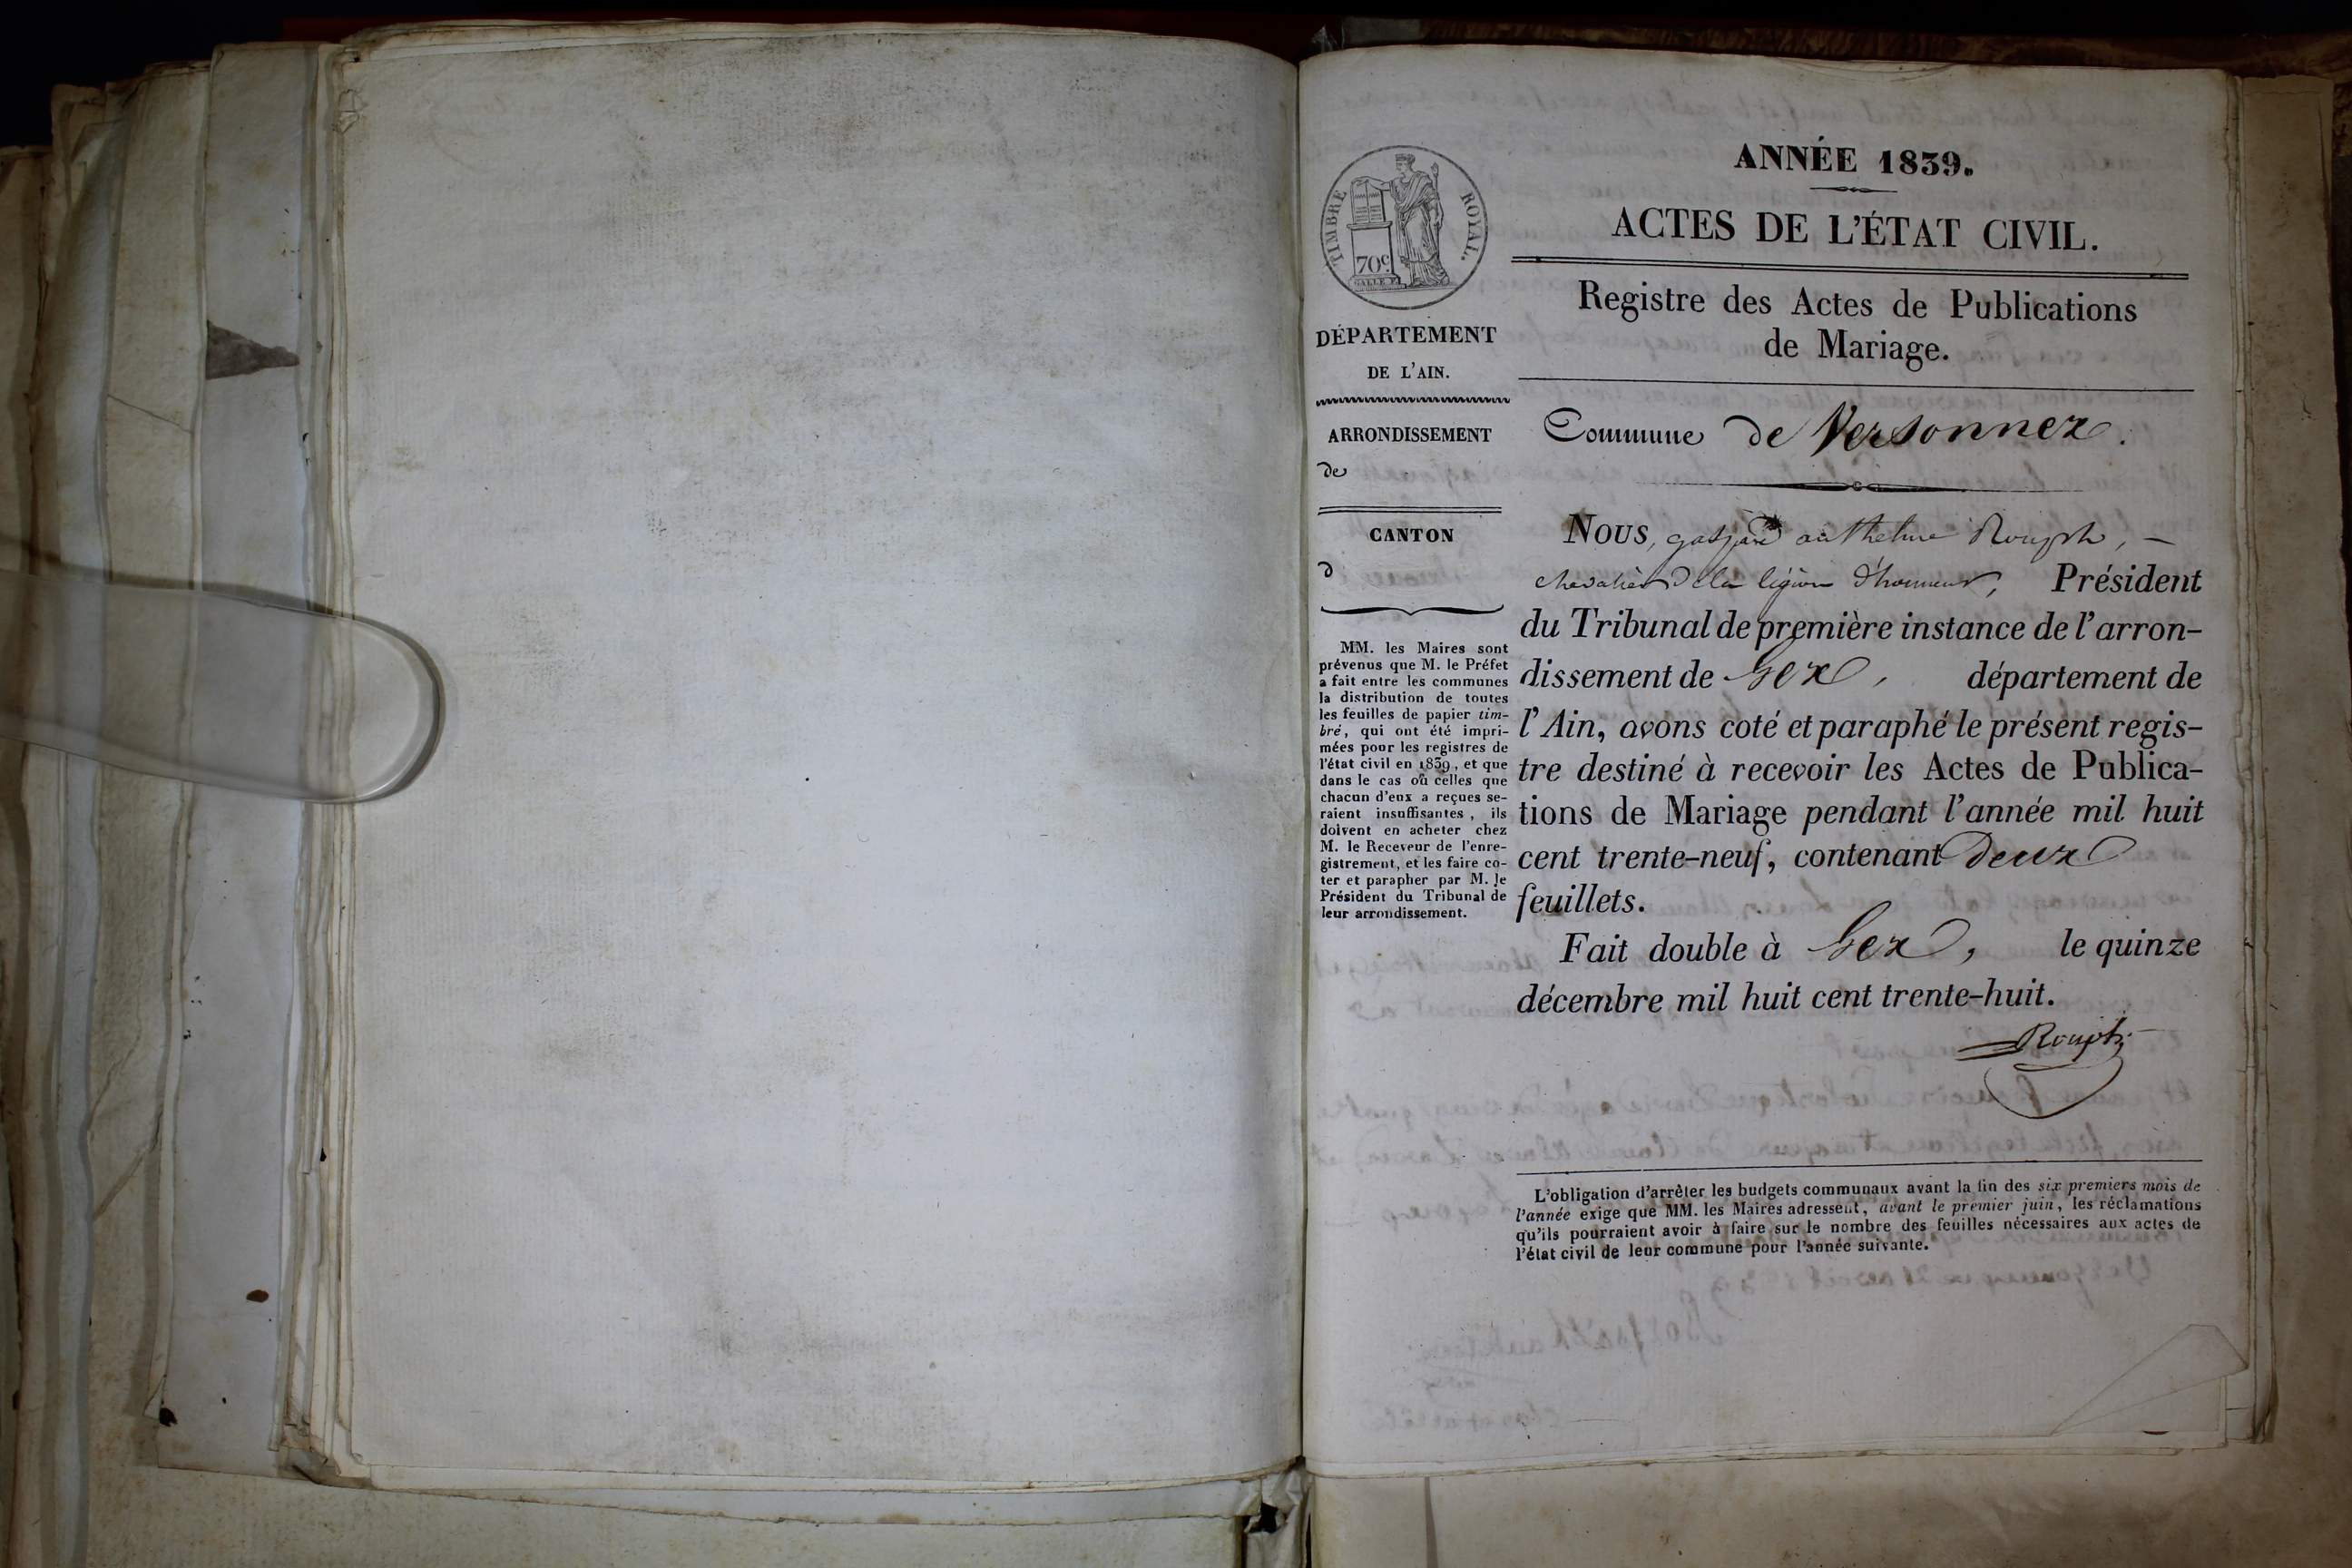 ANNÉE 1839.
ACTES DE L'ÉTAT CIVIL.
Registre des Actes de Publications
de Mariage.
Commune de Versonnex.
TIMBRE ROYAL.
70c.
DÉPARTEMENT
DE L'AIN.
ARRONDISSEMENT
de
CANTON
d
MM. les Maires sont
prévenus que M. le Préfet
a fait entre les communes
la distribution de toutes
les feuilles de papier tim-
bré, qui ont été impri-
mées pour les registres de
l'état civil en 1839, et que
dans le cas où celles que
chacun d'eux a reçues se-
raient insuffisantes, ils
doivent en acheter chez
M. le Receveur de l'enre-
gistrement, et les faire co-
ter et parapher par M. le
Président du Tribunal de
leur arrondissement.
Nous, gaspard anthelme Rouph, –
chevalier de la légion d'honneur, Président
du Tribunal de première instance de l'arron-
dissement de Gex, département de
l'Ain, avons coté et paraphé le présent regis-
tre destiné à recevoir les Actes de Publica-
tions de Mariage pendant l'année mil huit
cent trente-neuf, contenant deux
feuillets.
Fait double à Gex, le quinze
décembre mil huit cent trente-huit.
Rouph
L'obligation d'arrêter les budgets communaux avant la fin des six premiers mois de
l'année exige que MM. les Maires adressent, avant le premier juin, les réclamations
qu'ils pourraient avoir à faire sur le nombre des feuilles nécessaires aux actes de
l'état civil de leur commune pour l'année suivante.